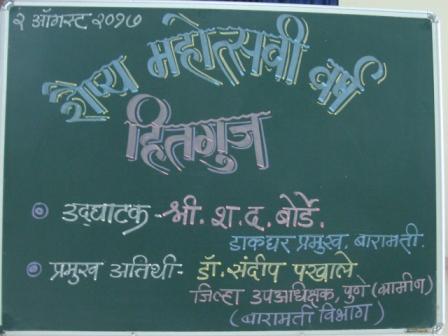 २ ऑगस्ट २०१७
रौप्य महोत्सवी वर्ष
हितगुज
उद्घाटक - श्री. श. द. बोर्डे.
डाकघर प्रमुख, बारामती.
प्रमुख अतिथी:- डॉ. संदीप पखाले
जिल्हा उपअधिक्षक, पुणे (ग्रामीण)
(बारामती विभाग)